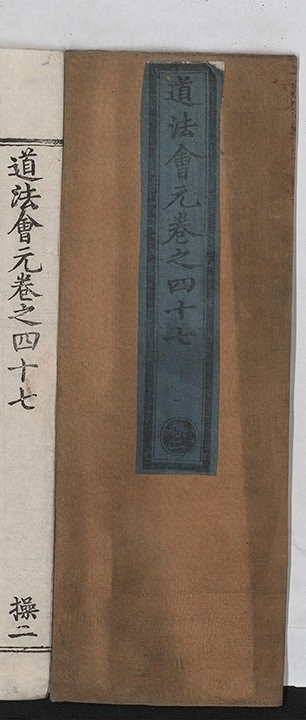 道法會元卷之四十七
操二
道法會元卷之四十七
操二